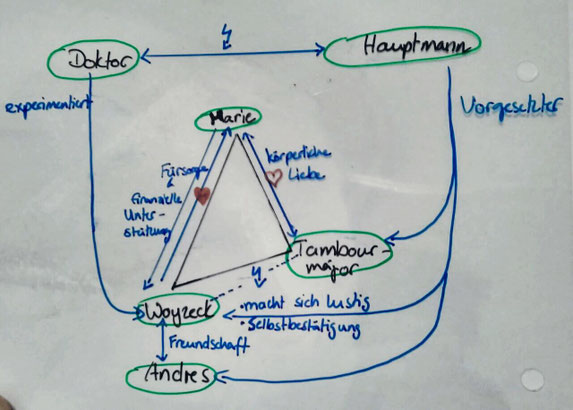 Doktor
Hauptmann
experimentiert
Vorgesetzter
Marie
Fürsorge
finanzielle
Unter-
stützung
körperliche
Liebe
Tambour-
major
Woyzeck
• macht sich lustig
• Selbstbestätigung
Freundschaft
Andres